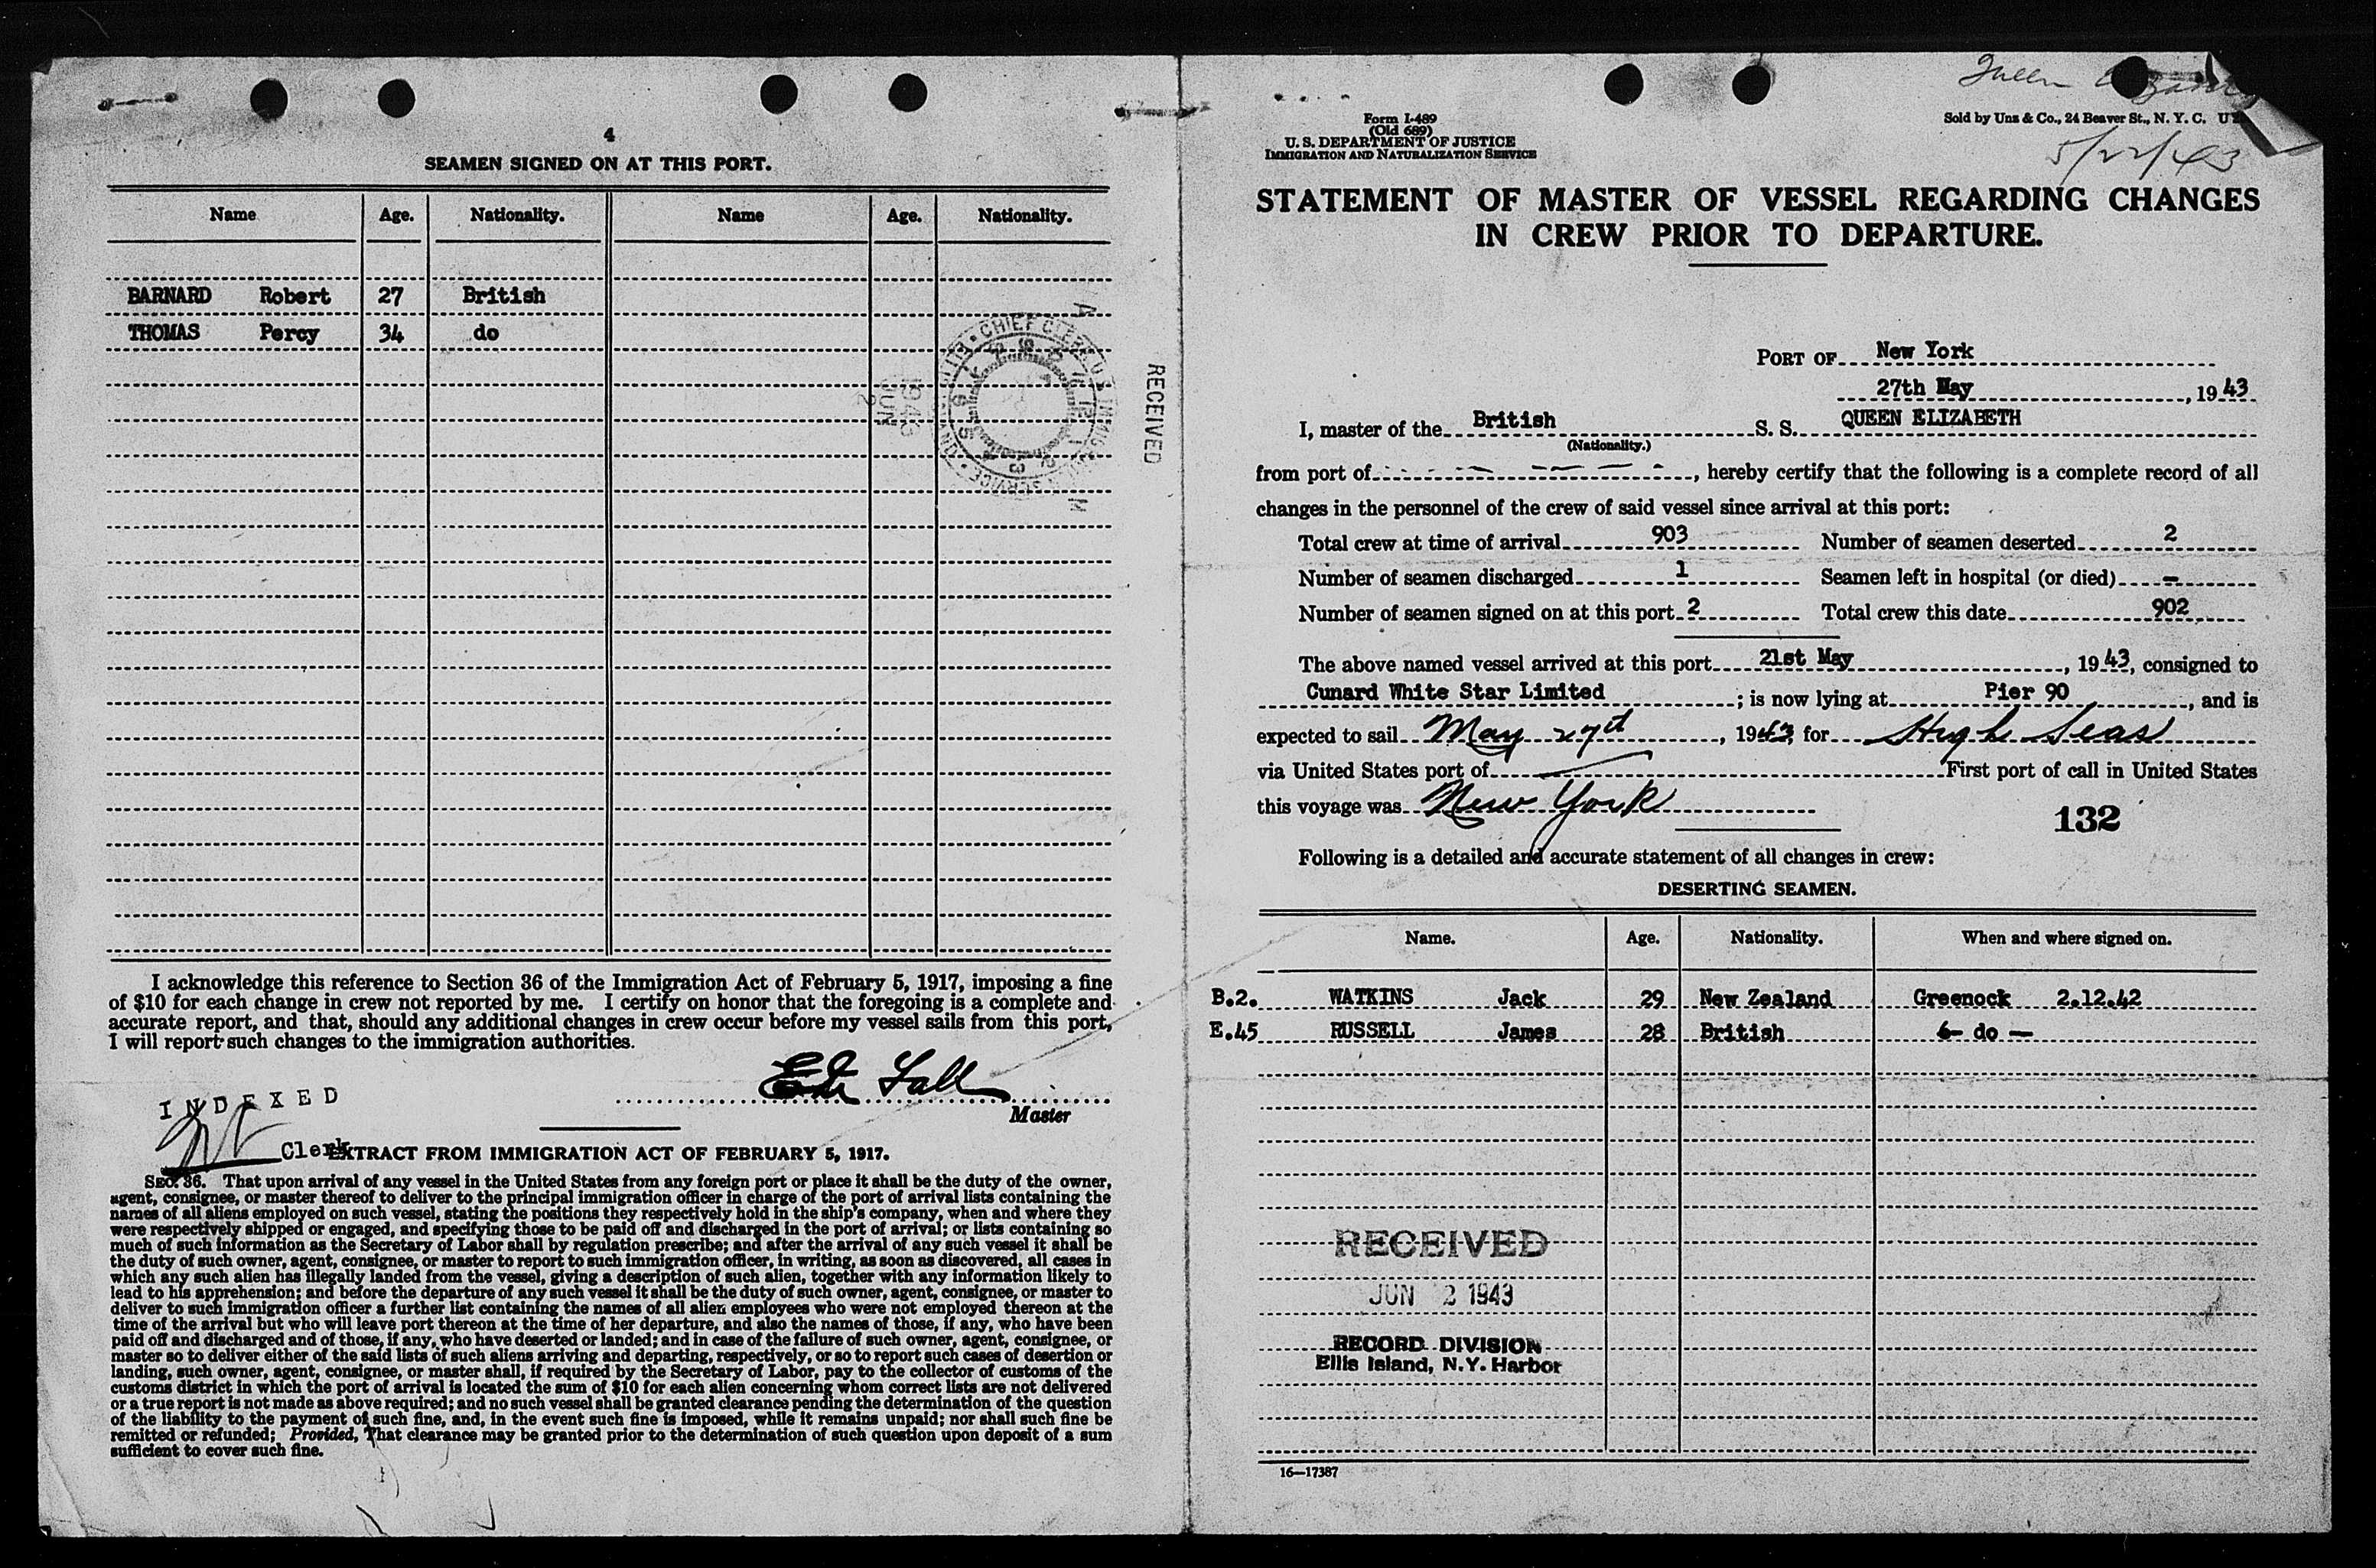 4
SEAMEN SIGNED ON AT THIS PORT.
Name Age. Nationality. Name Age. Nationality.
BARNARD Robert 27 British
THOMAS Percy 34 do
RECEIVED
1943 JUN 2
CHIEF CLERK U.S.
I acknowledge this reference to Section 36 of the Immigration Act of February 5, 1917, imposing a fine
of $10 for each change in crew not reported by me. I certify on honor that the foregoing is a complete and
accurate report, and that, should any additional changes in crew occur before my vessel sails from this port,
I will report such changes to the immigration authorities.
Master
INDEXED
Clerk
EXTRACT FROM IMMIGRATION ACT OF FEBRUARY 5, 1917.
SEC. 36. That upon arrival of any vessel in the United States from any foreign port or place it shall be the duty of the owner,
agent, consignee, or master thereof to deliver to the principal immigration officer in charge of the port of arrival lists containing the
names of all aliens employed on such vessel, stating the positions they respectively hold in the ship's company, when and where they
were respectively shipped or engaged, and specifying those to be paid off and discharged in the port of arrival; or lists containing so
much of such information as the Secretary of Labor shall by regulation prescribe; and after the arrival of any such vessel it shall be
the duty of such owner, agent, consignee, or master to report to such immigration officer, in writing, as soon as discovered, all cases in
which any such alien has illegally landed from the vessel, giving a description of such alien, together with any information likely to
lead to his apprehension; and before the departure of any such vessel it shall be the duty of such owner, agent, consignee, or master to
deliver to such immigration officer a further list containing the names of all alien employees who were not employed thereon at the
time of the arrival but who will leave port thereon at the time of her departure, and also the names of those, if any, who have been
paid off and discharged and of those, if any, who have deserted or landed; and in case of the failure of such owner, agent, consignee, or
master so to deliver either of the said lists of such aliens arriving and departing, respectively, or so to report such cases of desertion or
landing, such owner, agent, consignee, or master shall, if required by the Secretary of Labor, pay to the collector of customs of the
customs district in which the port of arrival is located the sum of $10 for each alien concerning whom correct lists are not delivered
or a true report is not made as above required; and no such vessel shall be granted clearance pending the determination of the question
of the liability to the payment of such fine, and, in the event such fine is imposed, while it remains unpaid; nor shall such fine be
remitted or refunded: Provided, That clearance may be granted prior to the determination of such question upon deposit of a sum
sufficient to cover such fine.
Queen
Form I-489
(Old 689)
U. S. DEPARTMENT OF JUSTICE
IMMIGRATION AND NATURALIZATION SERVICE
Sold by Unz & Co., 24 Beaver St., N. Y. C.
5/22/43
STATEMENT OF MASTER OF VESSEL REGARDING CHANGES
IN CREW PRIOR TO DEPARTURE.
PORT OF New York
27th May, 1943
I, master of the British S. S. QUEEN ELIZABETH
(Nationality.)
from port of - - - - - -, hereby certify that the following is a complete record of all
changes in the personnel of the crew of said vessel since arrival at this port:
Total crew at time of arrival 903 Number of seamen deserted 2
Number of seamen discharged 1 Seamen left in hospital (or died) -
Number of seamen signed on at this port 2 Total crew this date 902
The above named vessel arrived at this port 21st May, 1943, consigned to
Cunard White Star Limited; is now lying at Pier 90, and is
expected to sail May 27th, 1943 for High Seas
via United States port of First port of call in United States
this voyage was New York
132
Following is a detailed and accurate statement of all changes in crew:
DESERTING SEAMEN.
Name. Age. Nationality. When and where signed on.
B.2. WATKINS Jack 29 New Zealand Greenock 2.12.42
E.45 RUSSELL James 28 British - do -
RECEIVED
JUN 2 1943
RECORD DIVISION
Ellis Island, N.Y. Harbor
16—17387